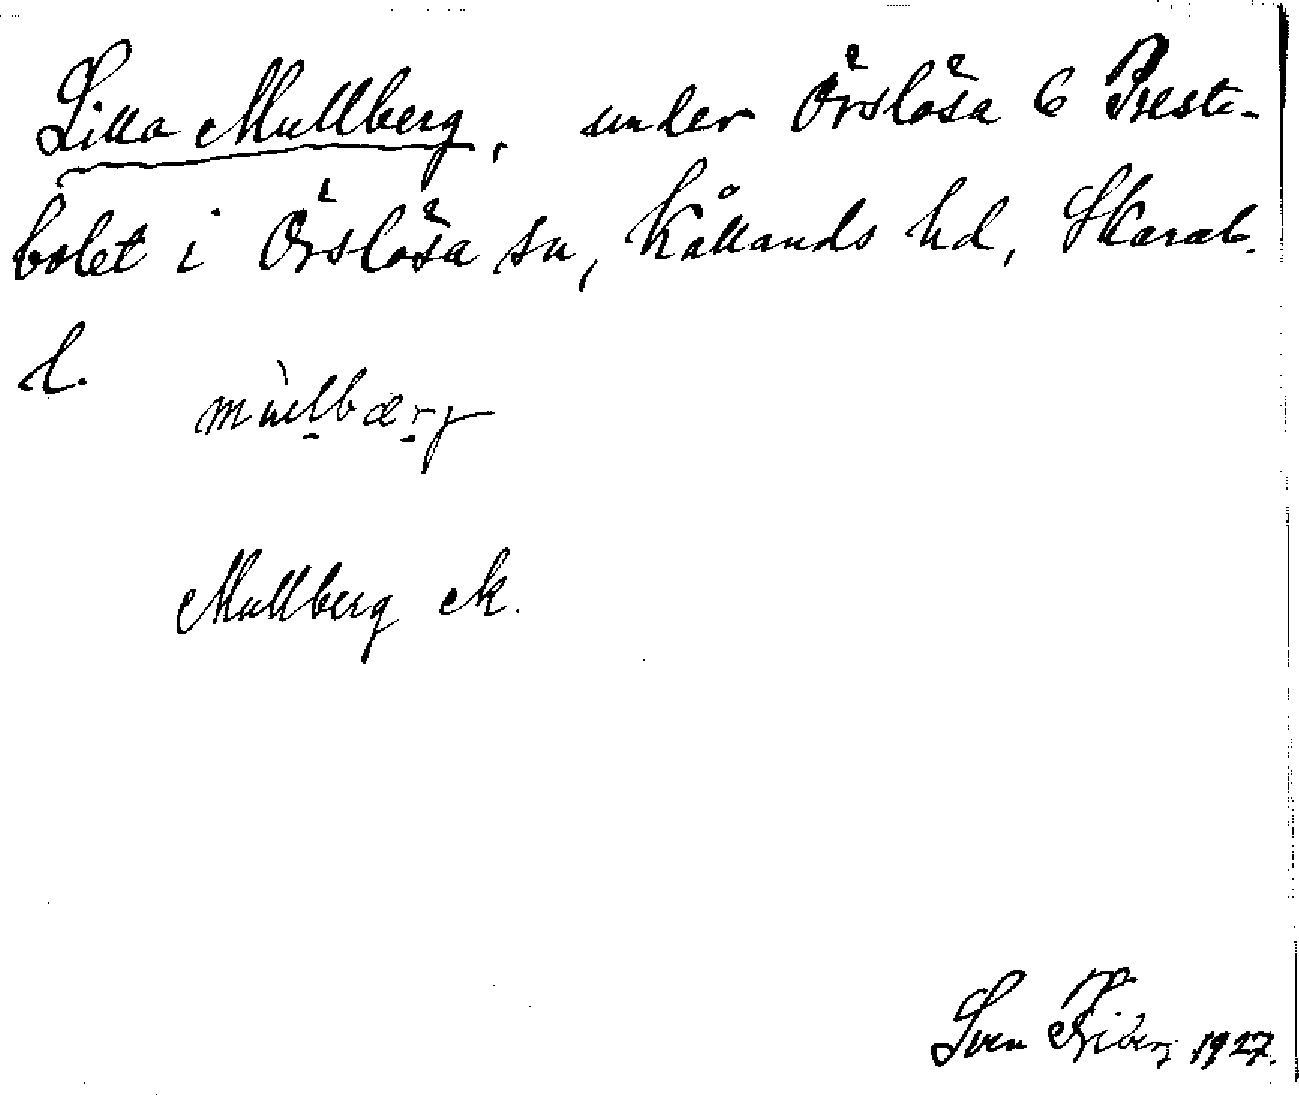 Lilla Mullberg, under Örslösa 6 Preste-
bolet i Örslösa sn, Kållands hd, Skarab.
l.
mùlbærg
Mullberg ek.
Sven Friberg 1927.